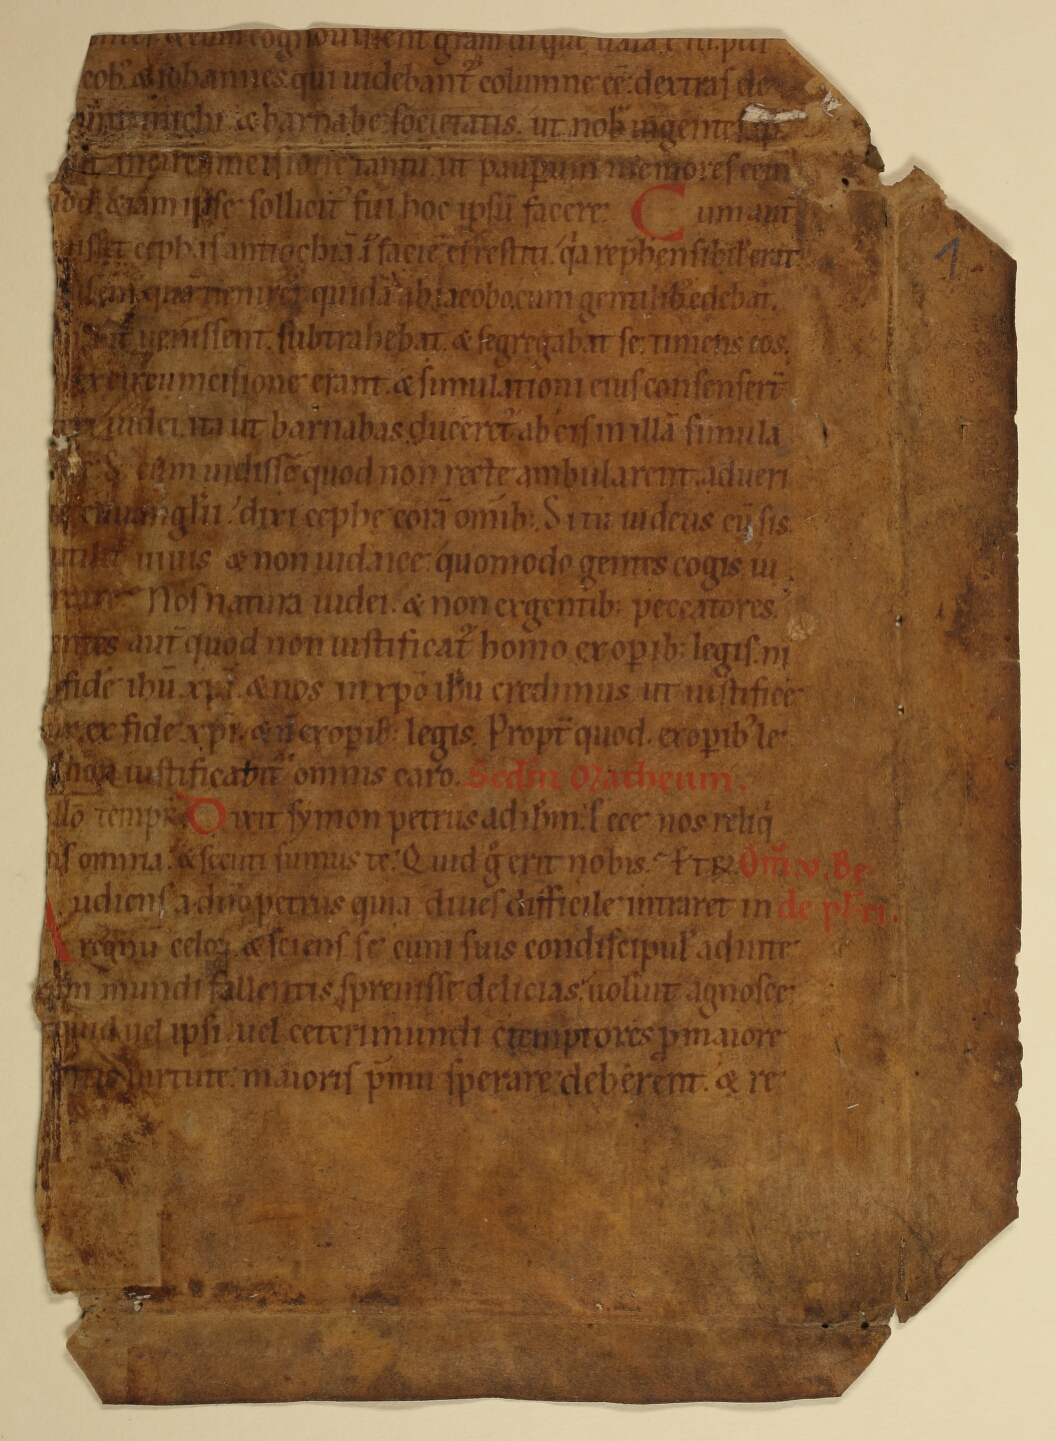 & cum cognouissent gr̄am
cob. & iohannes. qui uidebant᷑ columne eē. dextras de
michi & barnabe societatis. ut nos in gentes. ip̄
in circumcisionē tantū. ut pauperum memores eēm
qd̄ & iam ipse sollicit᷒ fui hoc ipsū facere. Cum aut̄
uisset cephas antiochiā ī faciē ei restiti. q̇a rep̄hensibil᷒ erat
quā uenirēt quidā ab iacobo. cum gentilib; edebat.
aut̄ uenissent. subtrahebat. & segregabat se. timens eos.
ex circumcisione erant. & simulationi eius consensert̄
iudei. ita ut barnabas duceret᷑ ab eis in illā simula
S; cum uidissē quod non recte ambularent. ad ueri
euuanglii. dixi cephe corā omib;. Si tu iudeus cū sis.
uiuis & non iudaice. quomodo gentes cogis iu
Nos natura iudei. & non ex gentib; peccatores.
entes aut̄ quod non iustificat᷑ homo ex operib; legis. ni
fidē ihū xp̄i. & nos in xp̄o ihū credimus ut iustifice
ex fide xp̄i. & n̄ ex operib; legis. Propt̄ quod. ex operib; le
non iustificabit᷑ omnis caro. Scd̄m Matheum.
illo tempr̄. Dixit symon petrus ad ihm̄. Ecce nos reliq̇
omnia. & secuti sumus te. Quid ḡ erit nobis. & r̄. Om̄. V. Be
Audiens a dn̄o petrus quia diues difficile intraret in de pr̄i.
regnū celoꝝ. & sciens se cum suis condiscipul᷒
mundi fallentis spreuisse delicias. uoluit agnosce
quid uel ipsi. uel ceteri mundi c̄temptores p maiore
uirtute. maioris p̄mii sperare deberent. & re
1